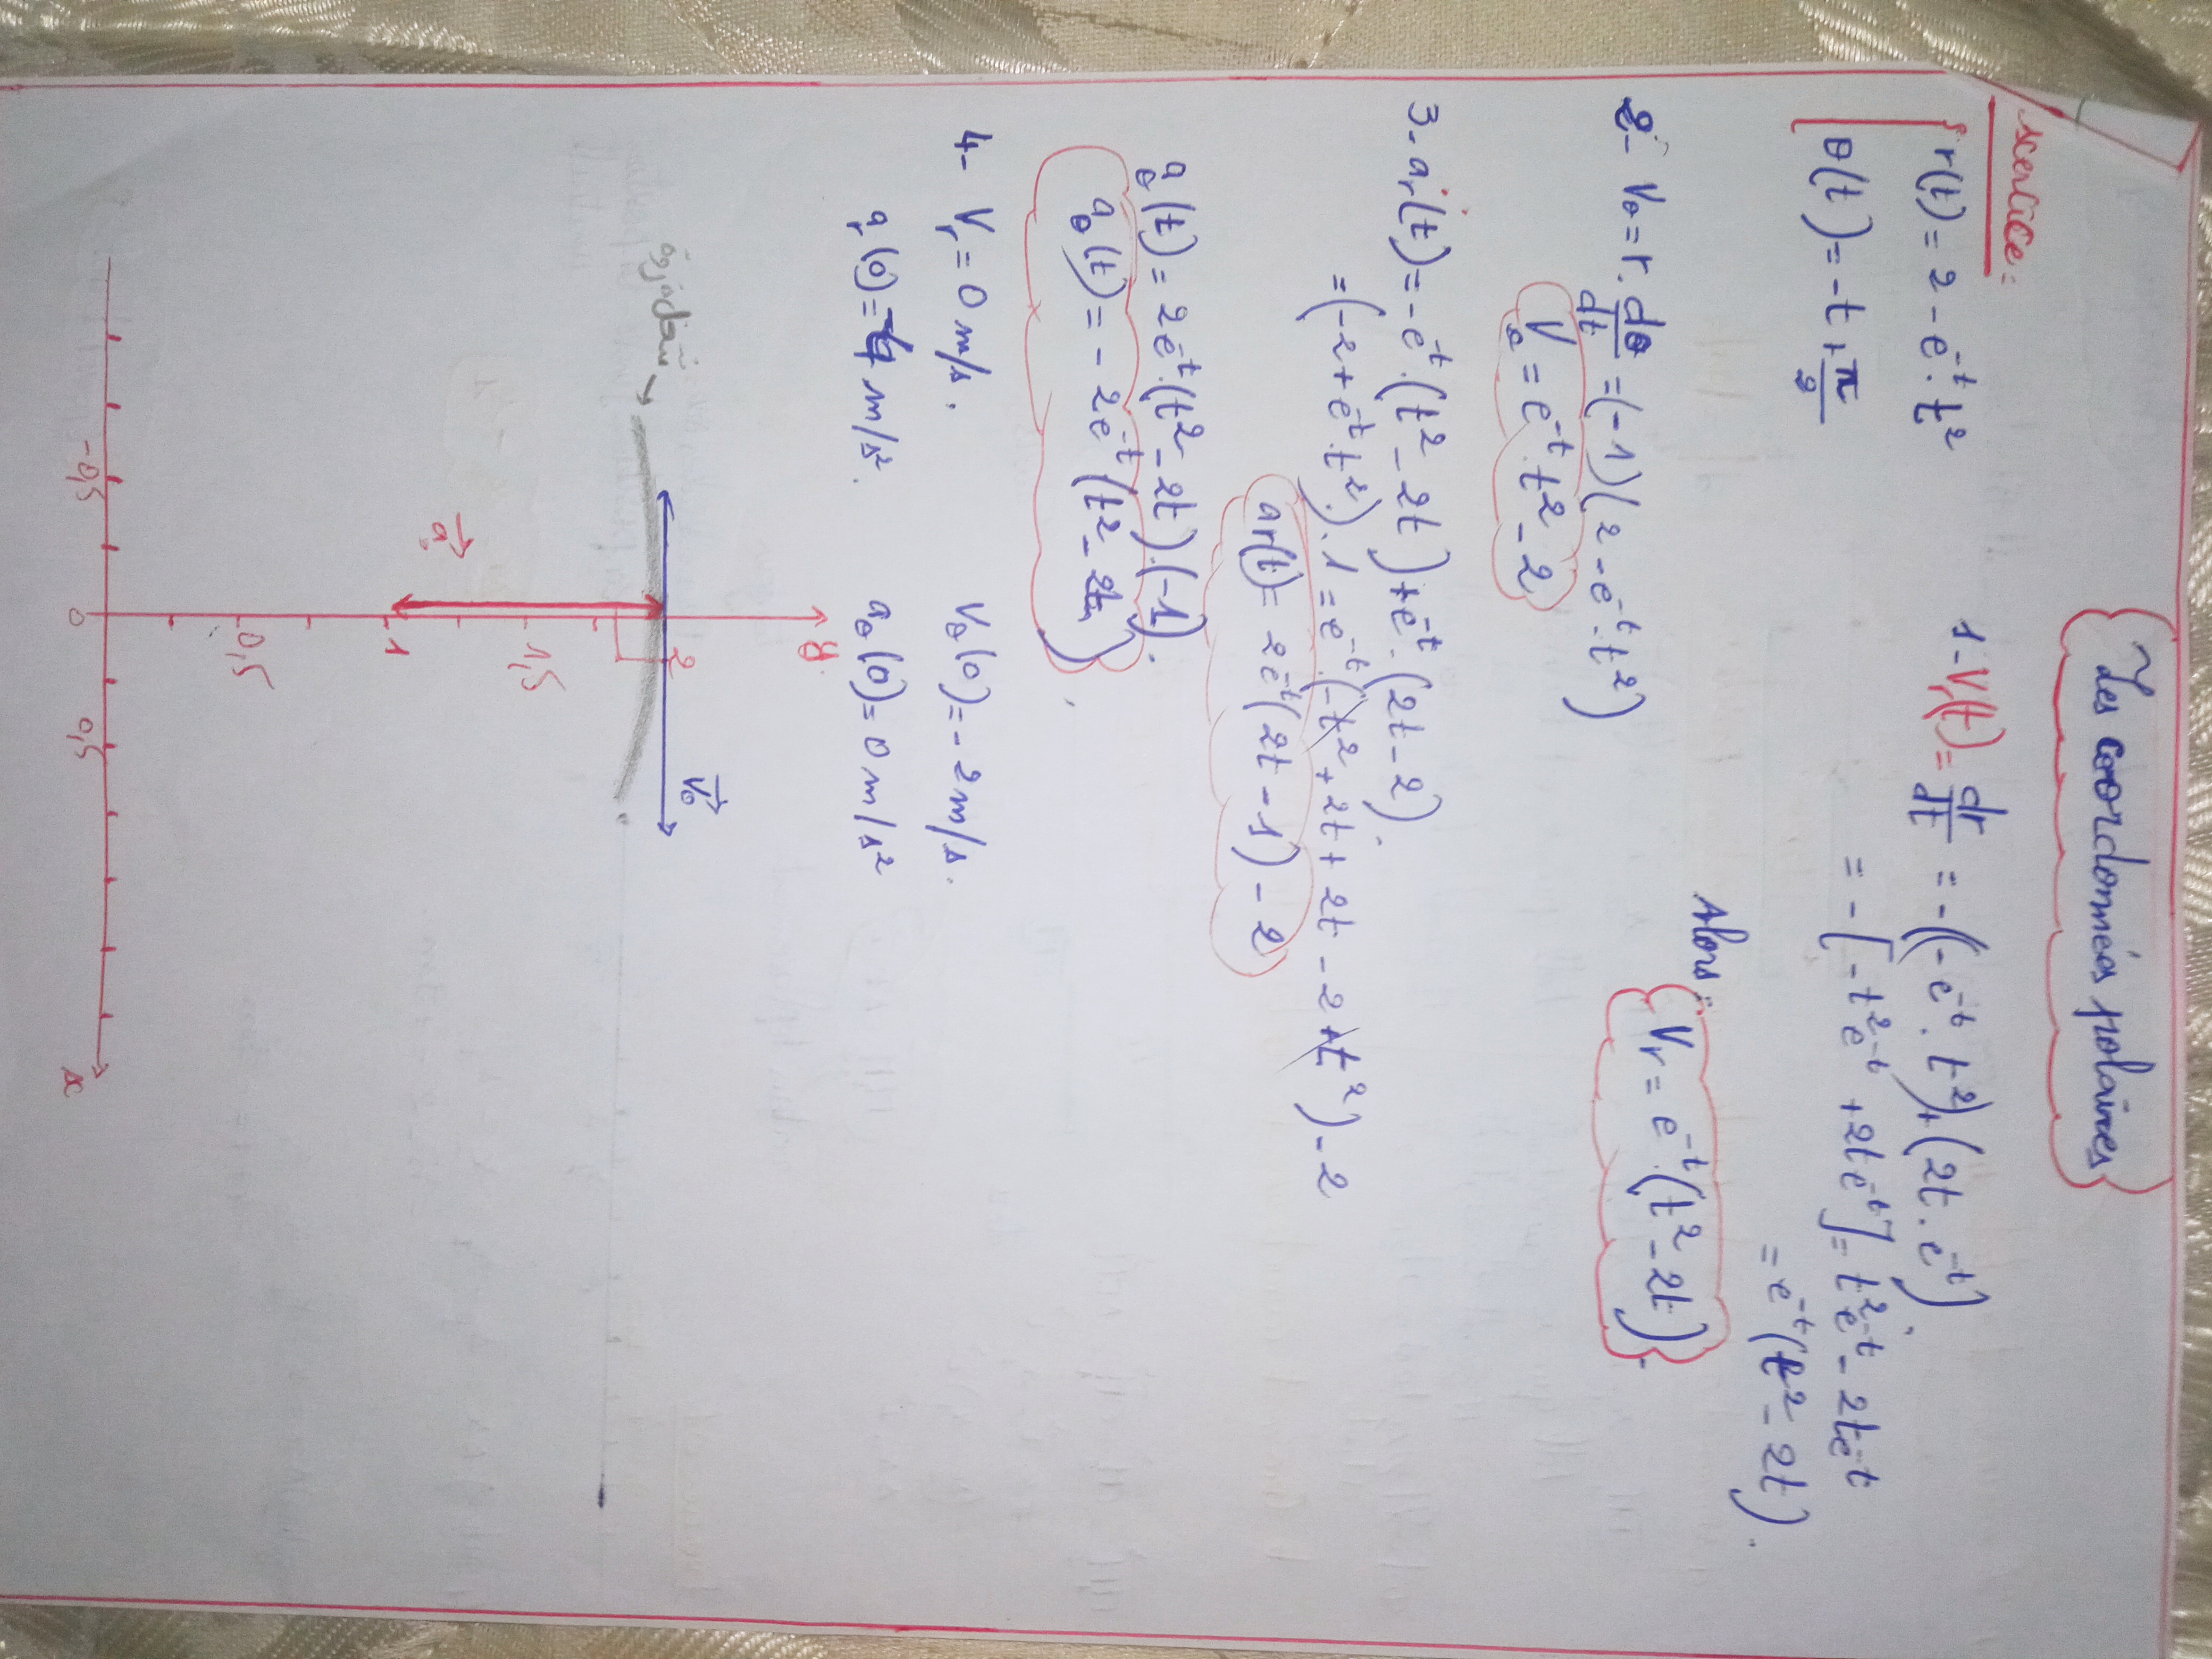 Les coordonnées polaires
xercice:
r(t) = 2 - e^-t . t^2
θ(t) = -t + π/2
1- Vr(t) = dr/dt = -(-e^-t . t^2) + (2t . e^-t)
= -[-t^2 e^-t + 2t e^-t] = t^2 e^-t - 2t e^-t
= e^-t (t^2 - 2t).
Alors: Vr = e^-t . (t^2 - 2t).
2- Vθ = r . dθ/dt = (-1)(2 - e^-t . t^2)
Vθ = e^-t . t^2 - 2
3- ar(t) = -e^-t . (t^2 - 2t) + e^-t . (2t - 2)
= (-2 + e^-t . t^2) . 1 = e^-t . (-t^2 + 2t + 2t - 2 + t^2) - 2
ar(t) = 2e^-t (2t - 1) - 2
aθ(t) = 2e^-t . (t^2 - 2t) . (-1).
aθ(t) = -2e^-t (t^2 - 2t)
4- Vr = 0 m/s. Vθ(0) = -2 m/s.
ar(0) = -4 m/s². aθ(0) = 0 m/s²
y
2
V₀
1,5
1
a₀
0,5
-0,5 0 0,5 x